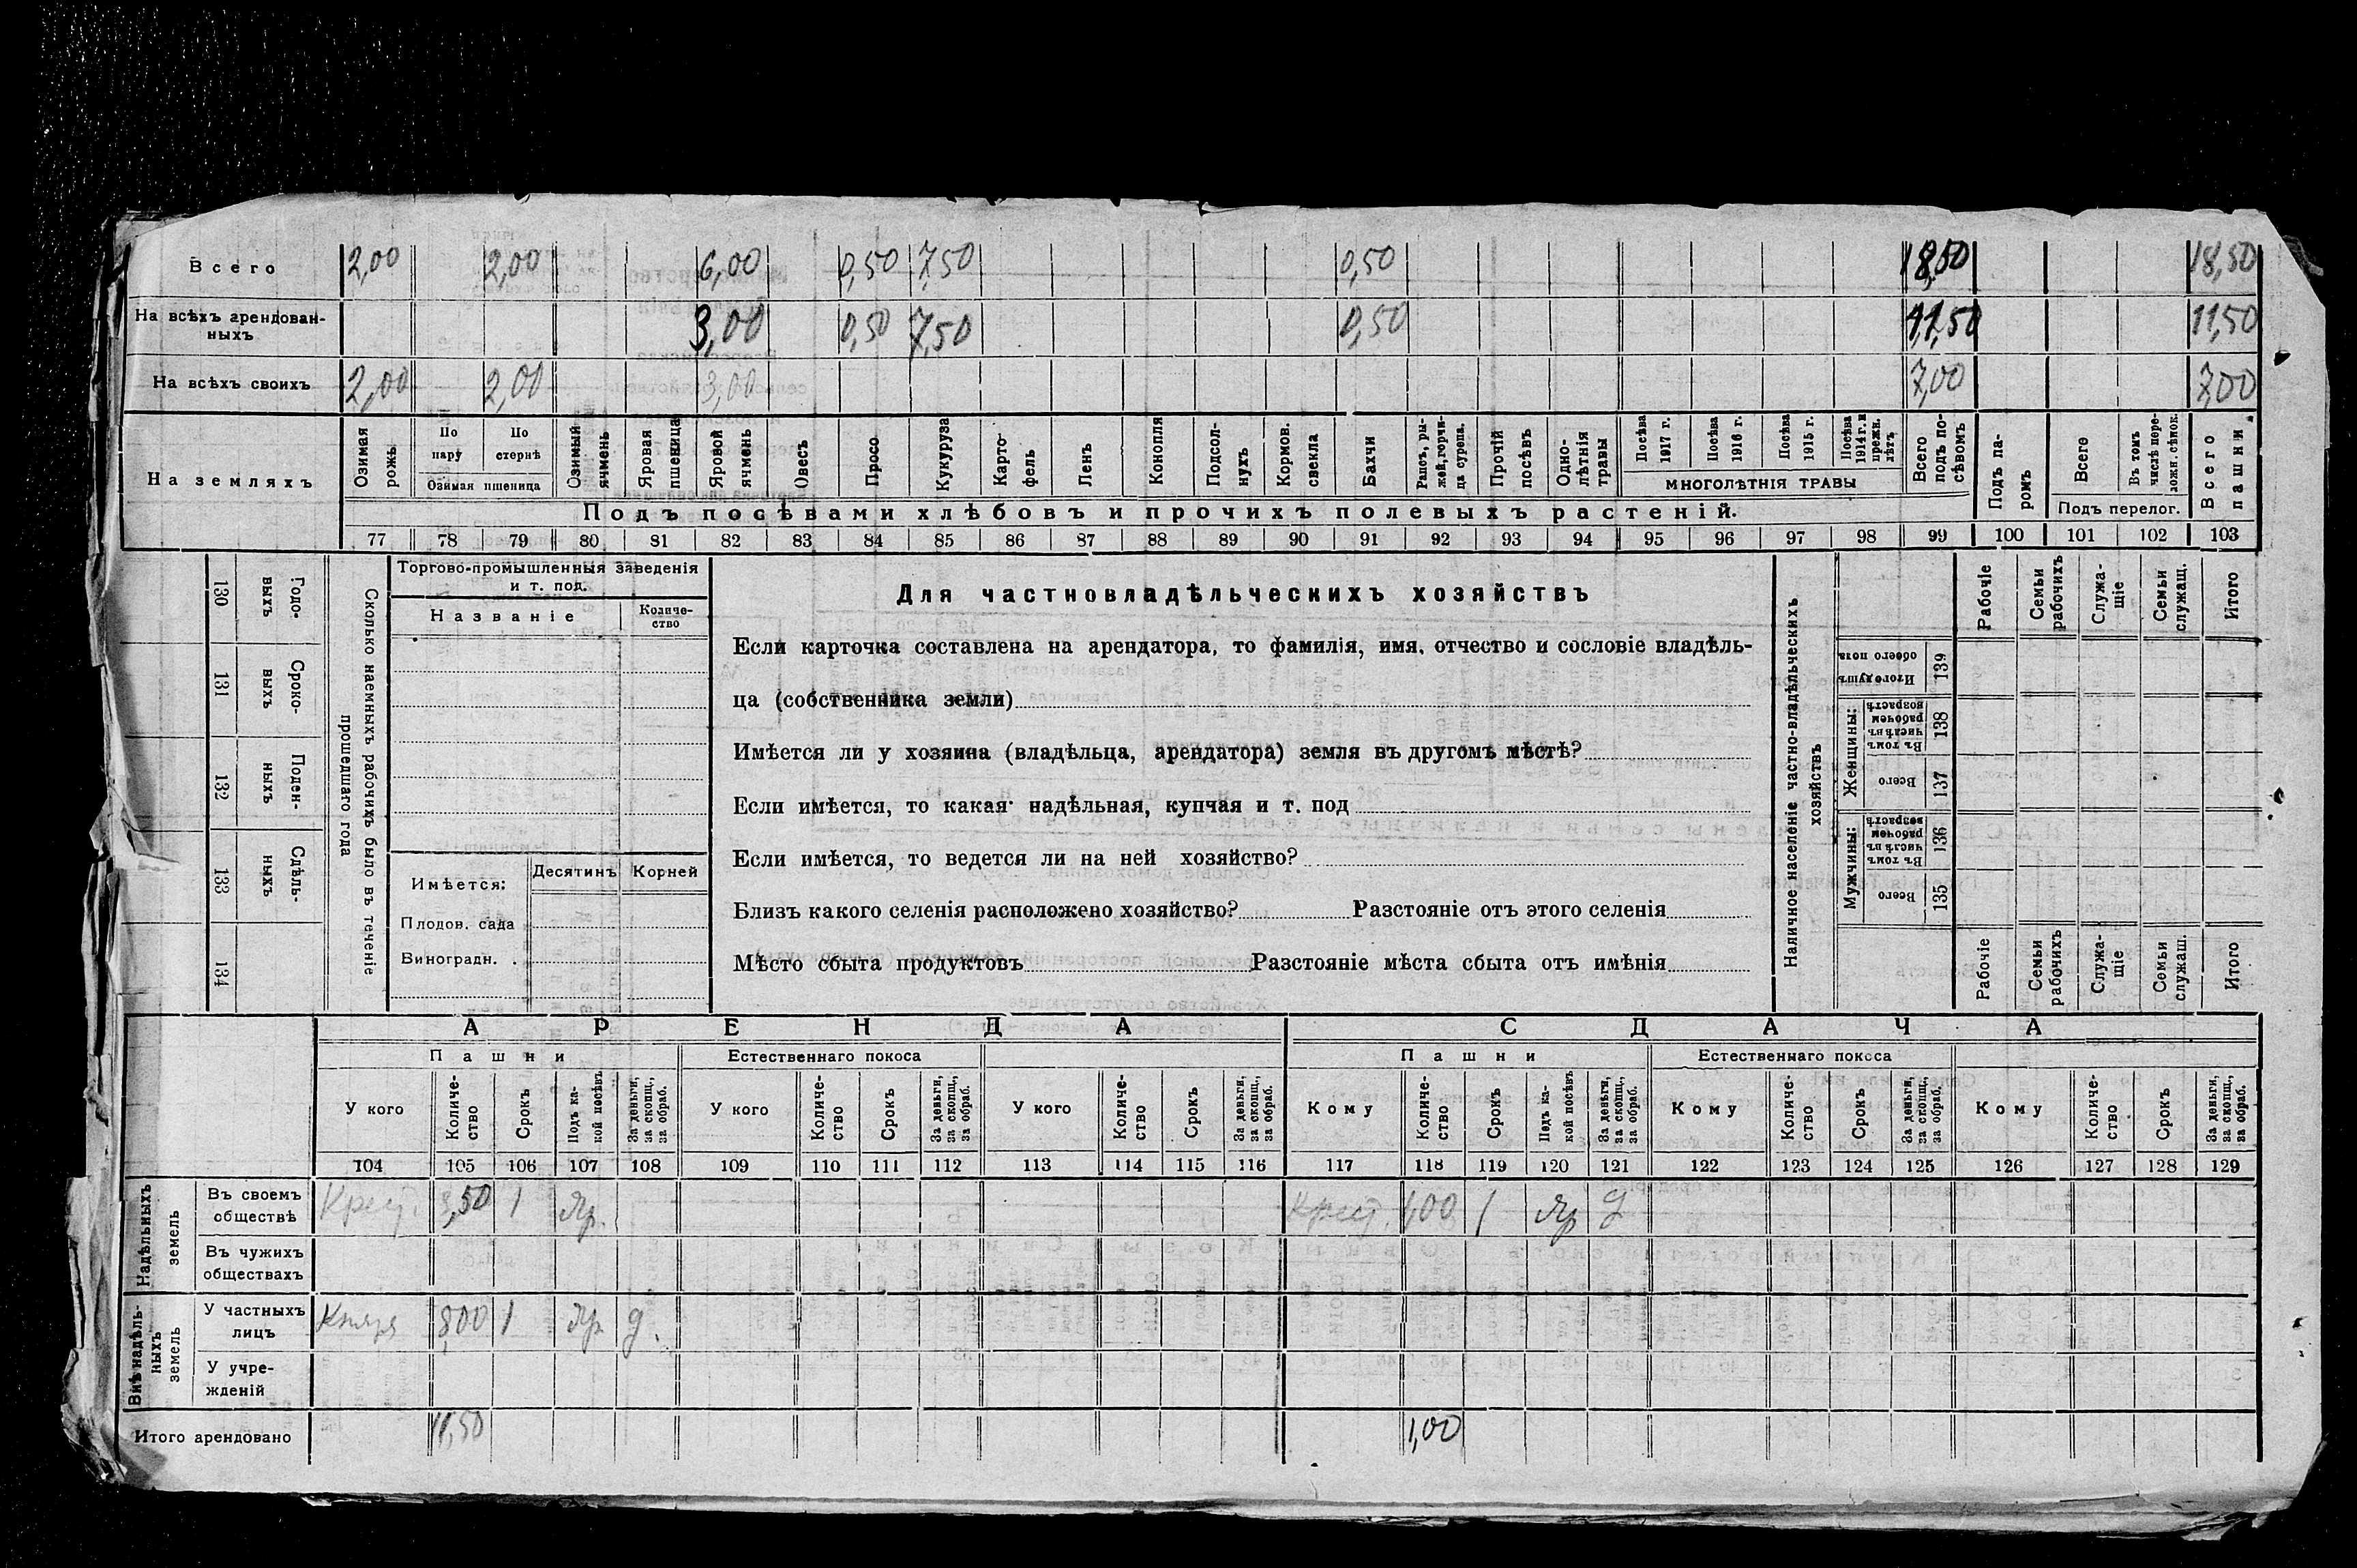 Всего 2,00 2,00 6,00 0,50 7,50 0,50 18,50 18,50
На всѣхъ арендован-
ныхъ 3,00 0,50 7,50 0,50 11,50 11,50
На всѣхъ своихъ 2,00 2,00 3,00 7,00 7,00
На земляхъ
Озимая рожь
По пару
По стернѣ
Озимая пшеница
Озимый ячмень
Яровая пшеница
Яровой ячмень
Овесъ
Просо
Кукуруза
Карто-
фель
Ленъ
Конопля
Подсол-
нухъ
Кормов. свекла
Бахчи
Рапсъ, ры-
жей, горчи-
ца сурепа.
Прочій посѣвъ
Одно-
лѣтнія травы
Посѣва 1917 г.
Посѣва 1916 г.
Посѣва 1915 г.
Посѣва 1914 г. и прежн. лѣтъ
МНОГОЛѢТНІЯ ТРАВЫ
Всего подъ по-
сѣвомъ
Подъ па-
ромъ
Всего
Въ томъ числѣ пере-
ложн. сѣнок.
Подъ перелог.
Всего пашни
Подъ посѣвами хлѣбовъ и прочихъ полевыхъ растеній.
77 78 79 80 81 82 83 84 85 86 87 88 89 90 91 92 93 94 95 96 97 98 99 100 101 102 103
130 Годо-
выхъ
131 Сроко-
выхъ
132 Поден-
ныхъ
133 Сдѣль-
ныхъ
134
Сколько наемныхъ рабочихъ было въ теченіе
прошедшаго года
Торгово-промышленныя заведенія
и т. под.
Названіе
Количе-
ство
Имѣется:
Десятинъ
Корней
Плодов. сада
Виноградн. .
Для частновладѣльческихъ хозяйствъ
Если карточка составлена на арендатора, то фамилія, имя, отчество и сословіе владѣль-
ца (собственника земли)
Имѣется ли у хозяина (владѣльца, арендатора) земля въ другомъ мѣстѣ?
Если имѣется, то какая надѣльная, купчая и т. под
Если имѣется, то ведется ли на ней хозяйство?
Близъ какого селенія расположено хозяйство? Разстояніе отъ этого селенія
Мѣсто сбыта продуктовъ Разстояніе мѣста сбыта отъ имѣнія
Наличное населеніе частно-владѣльческихъ
хозяйствъ
Рабочіе
Семьи рабочихъ
Служа-
щіе
Семьи служащ.
Итого
Итого душъ обоего пола 139
Женщины:
Въ томъ числѣ въ рабочемъ возрастѣ 138
Всего 137
Мужчины:
Въ томъ числѣ въ рабочемъ возрастѣ 136
Всего 135
Рабочіе
Семьи рабочихъ
Служа-
щіе
Семьи служащ.
Итого
АРЕНДА СДАЧА
Пашни Естественнаго покоса Пашни Естественнаго покоса
У кого
Количе-
ство
Срокъ
Подъ ка-
кой посѣвъ
За деньги, за скопщ., за обраб.
У кого
Количе-
ство
Срокъ
За деньги, за скопщ., за обраб.
У кого
Количе-
ство
Срокъ
За деньги, за скопщ., за обраб.
Кому
Количе-
ство
Срокъ
Подъ ка-
кой посѣвъ
За деньги, за скопщ., за обраб.
Кому
Количе-
ство
Срокъ
За деньги, за скопщ., за обраб.
Кому
Количе-
ство
Срокъ
За деньги, за скопщ., за обраб.
104 105 106 107 108 109 110 111 112 113 114 115 116 117 118 119 120 121 122 123 124 125 126 127 128 129
Надѣльныхъ земель
Въ своемъ
обществѣ Крест. 3,50 1 Яр. Крест. 1,00 1 Яр д
Въ чужихъ
обществахъ
Внѣ надѣль-
ныхъ земель
У частныхъ
лицъ Князя 8,00 1 Яр д.
У учре-
жденій
Итого арендовано 11,50 1,00